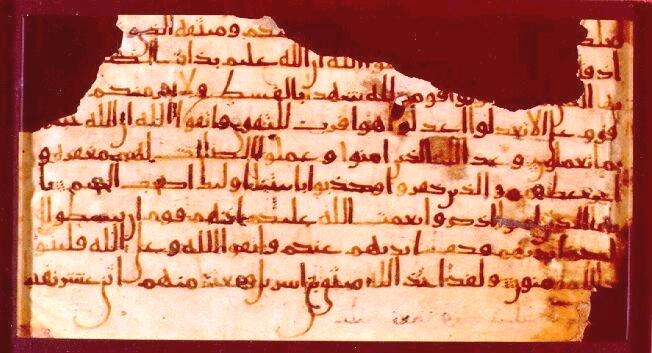 عليكم وميثقه الذي
الله ان الله عليم بذات الصد
قومين لله شهدا بالقسط ولا يجرمنكم
قوم على الا تعدلوا اعدلوا هو اقرب للتقوى واتقوا الله ان الله خبير
بما تعملون وعد الله الذين امنوا وعملوا الصلحت لهم مغفرة و
اجر عظيم والذين كفروا وكذبوا بايتنا اوليك اصحب الجحيم يا
يها الذين امنوا اذكروا نعمت الله عليكم اذ هم قوم ان يبسطوا ا
ليكم ايديهم فكف ايديهم عنكم واتقوا الله وعلى الله فليتو
كل المومنون ولقد اخذ الله ميثق بني اسريل وبعثنا منهم اثني عشر نقيبا